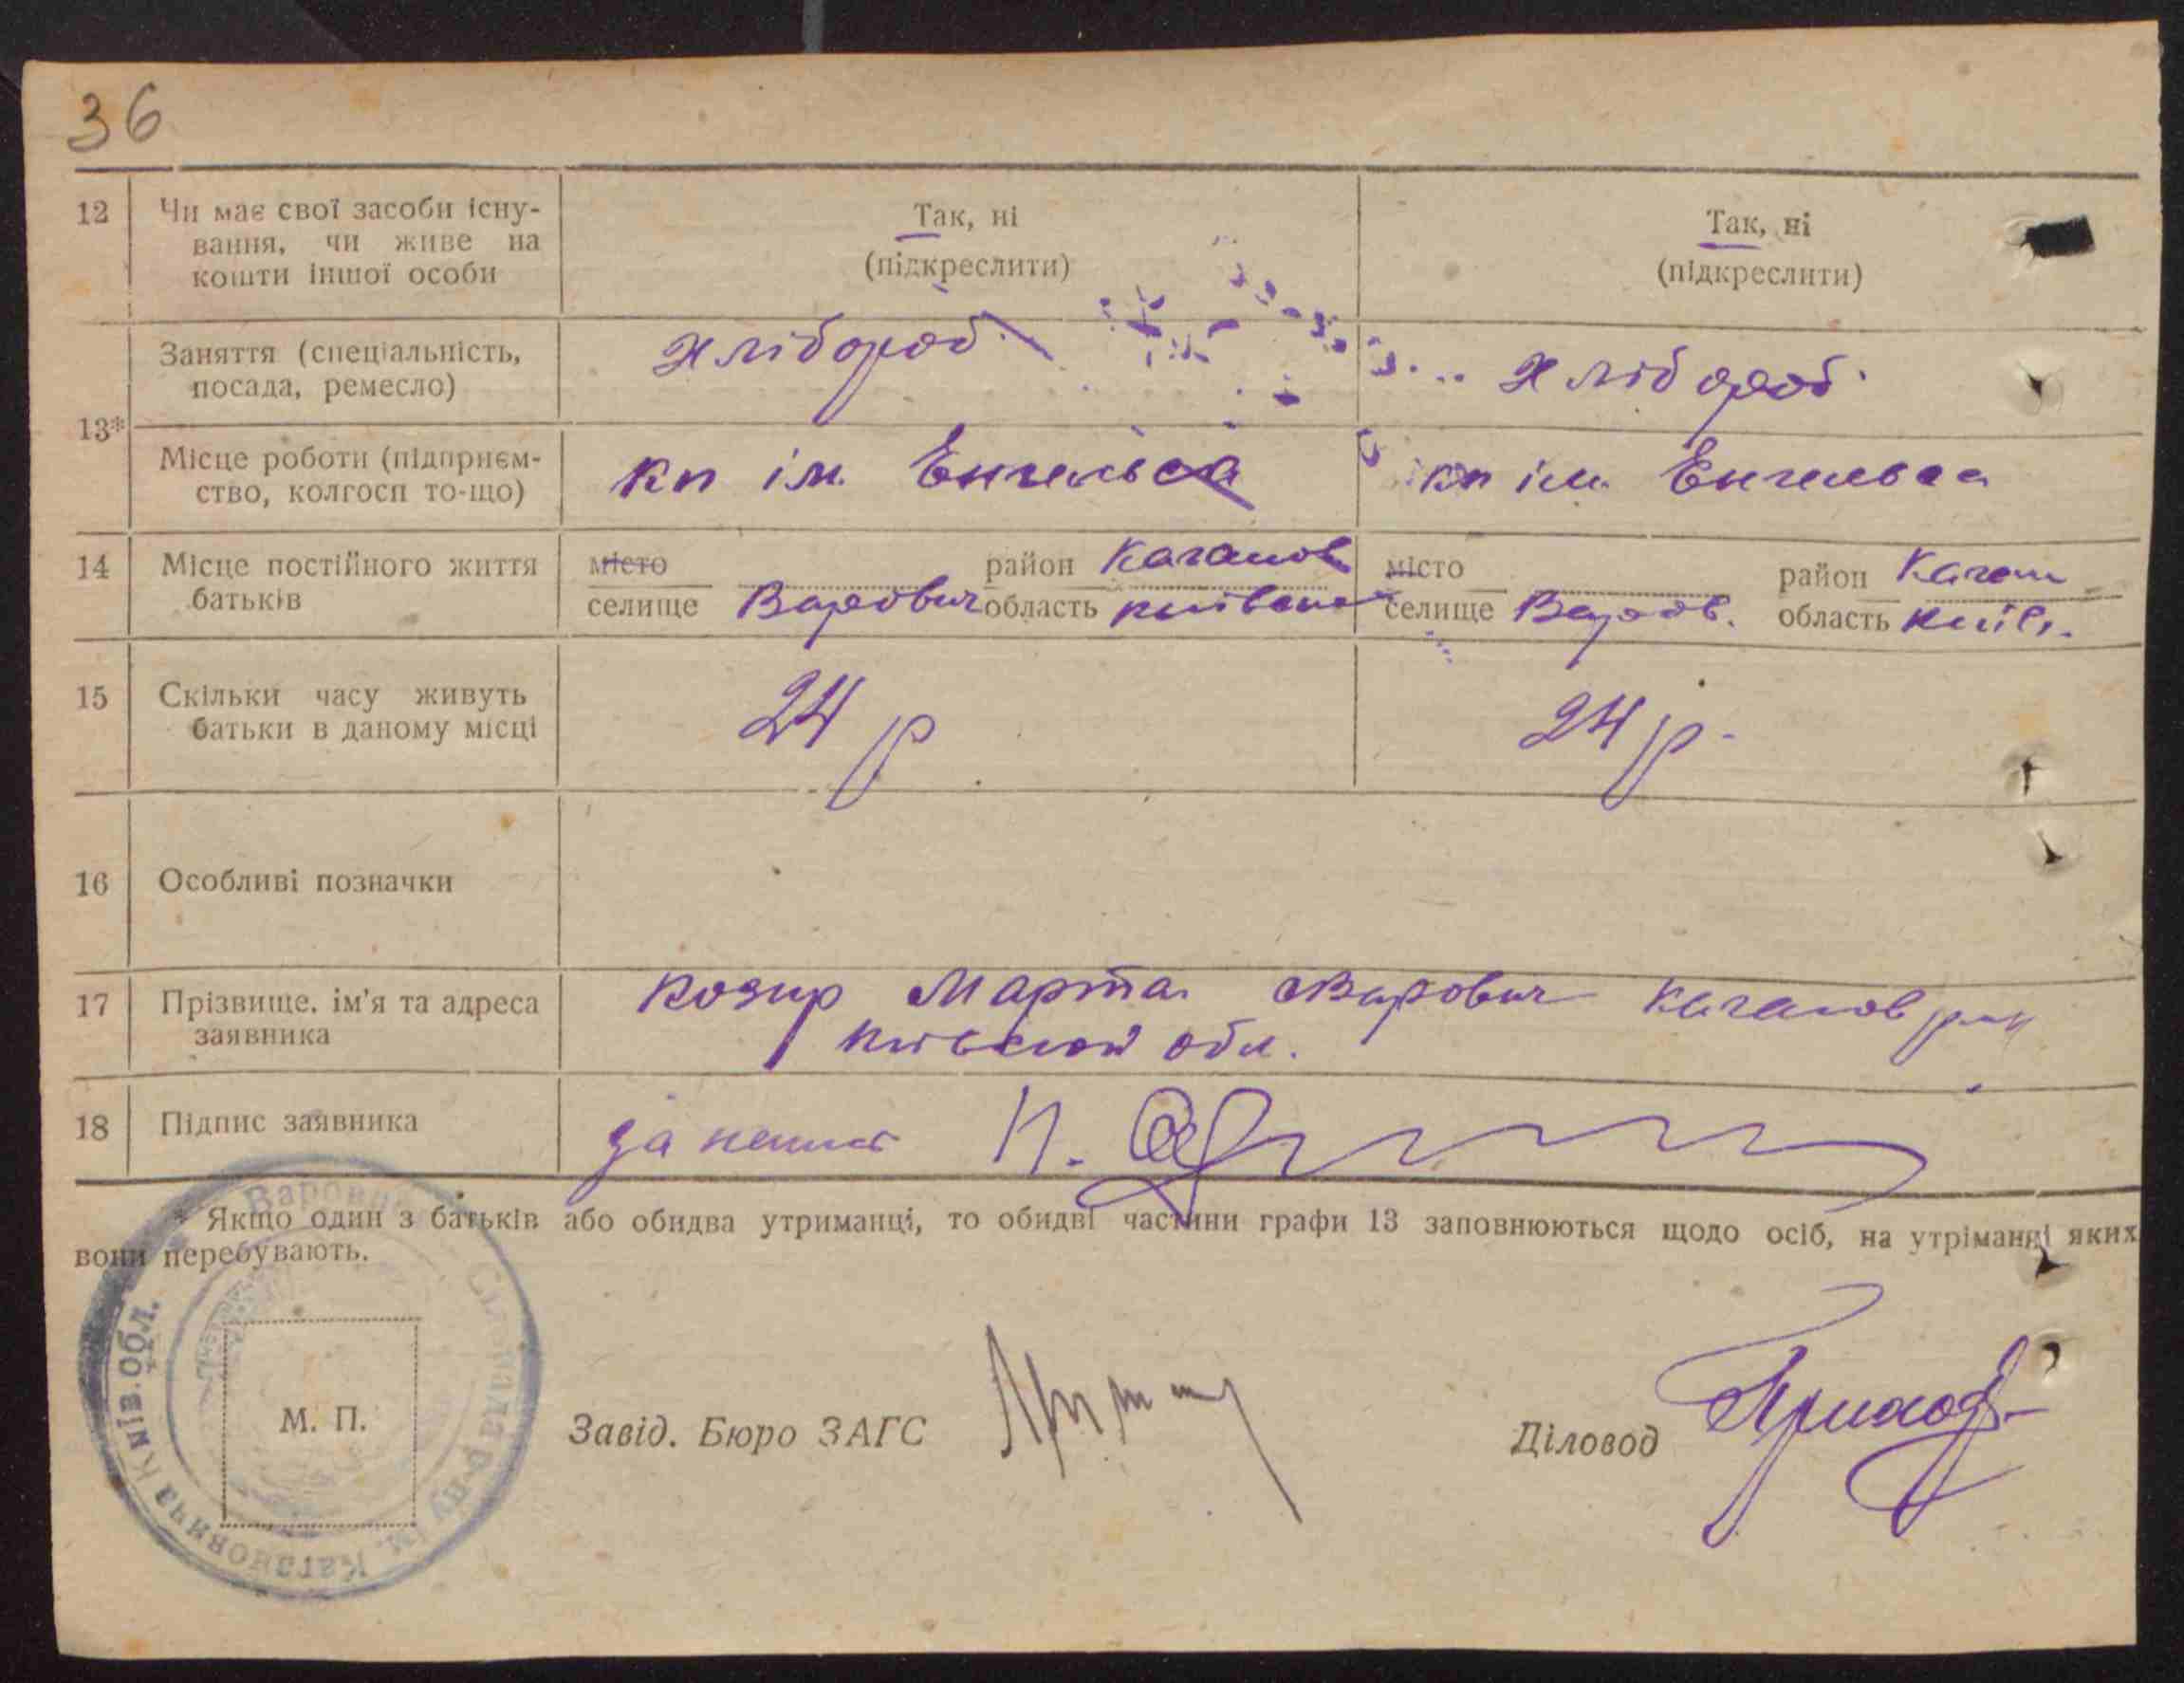 36
12 Чи має свої засоби існу- Так, ні Так, ні
вання, чи живе на (підкреслити) (підкреслити)
кошти іншої особи
Заняття (спеціальність, хлібороб. хлібороб.
посада, ремесло)
13*
Місце роботи (підприєм- кп ім. Енгельса кп ім. Енгельса
ство, колгосп то-що)
14 Місце постійного життя місто район Каганов місто район Каган
батьків селище Варович область київська селище Варов. область київ.
15 Скільки часу живуть 24 р 24 р.
батьки в даному місці
16 Особливі позначки
17 Прізвище, ім'я та адреса Козир Марта Варович Каганов
заявника обл.
18 Підпис заявника за
* Якщо один з батьків або обидва утриманці, то обидві частини графи 13 заповнюються щодо осіб, на утріманні яких
вони перебувають.
М. П. Завід. Бюро ЗАГС Діловод
Київ. обл.